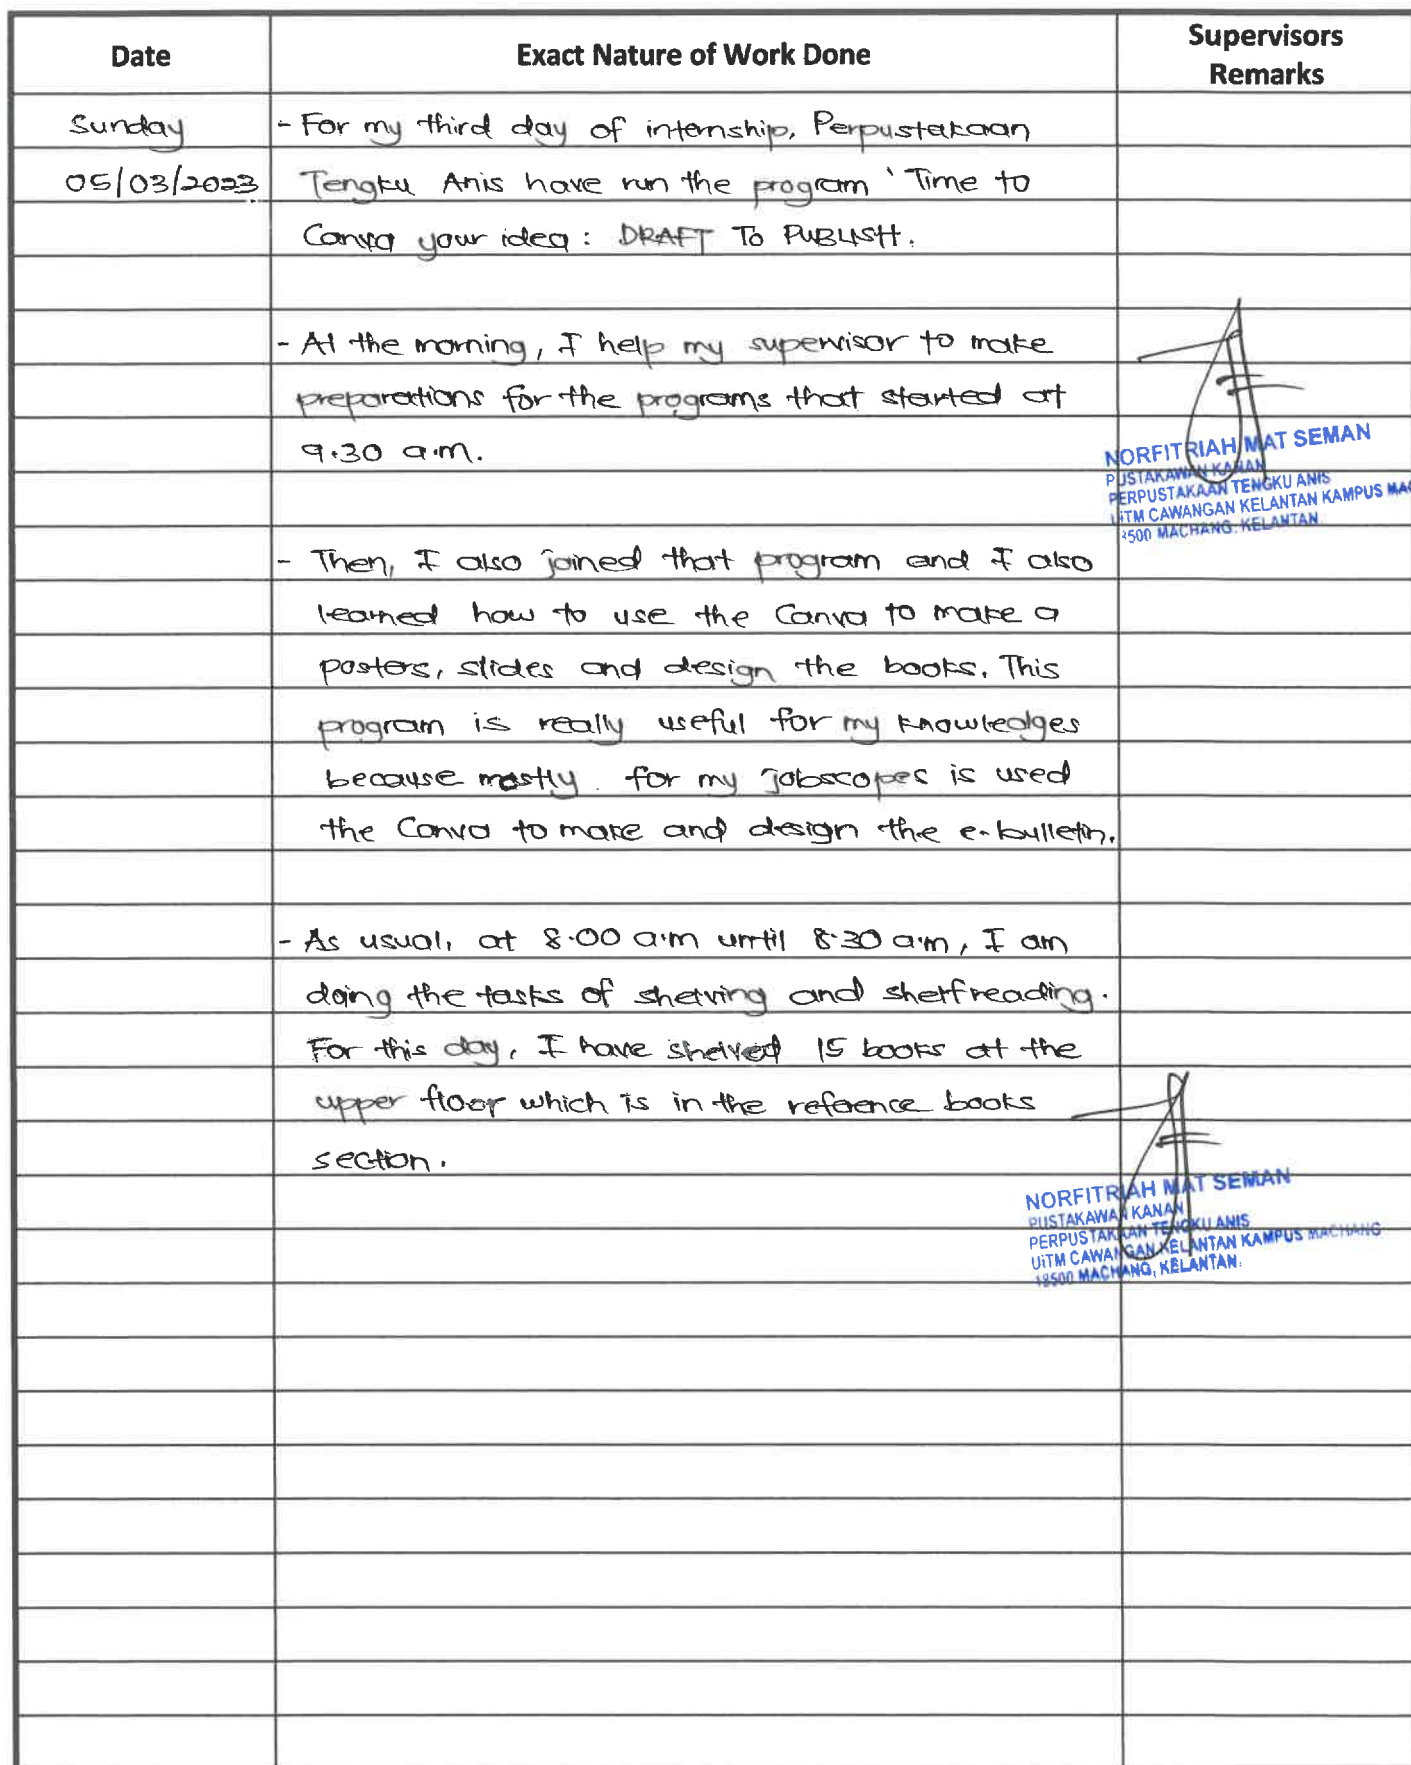 Date
Exact Nature of Work Done
Supervisors
Remarks
Sunday
05/03/2023
- For my third day of internship, Perpustakaan
Tengku Anis have run the program 'Time to
Canva your idea: DRAFT TO PUBLISH.
- At the morning, I help my supervisor to make
preparations for the programs that started at
9.30 a.m.
NORFITRIAH MAT SEMAN
PUSTAKAWAN KANAN
PERPUSTAKAAN TENGKU ANIS
UiTM CAWANGAN KELANTAN KAMPUS MAC
8500 MACHANG, KELANTAN.
- Then, I also joined that program and I also
learned how to use the Canva to make a
posters, slides and design the books. This
program is really useful for my knowledges
because mostly for my jobscopes is used
the Canva to make and design the e-bulletin.
- As usual, at 8.00 a.m until 8.30 a.m, I am
doing the tasks of shelving and shelfreading.
For this day, I have shelved 15 books at the
upper floor which is in the reference books
section.
NORFITRIAH MAT SEMAN
PUSTAKAWAN KANAN
PERPUSTAKAAN TENGKU ANIS
UiTM CAWANGAN KELANTAN KAMPUS MACHANG
18500 MACHANG, KELANTAN.